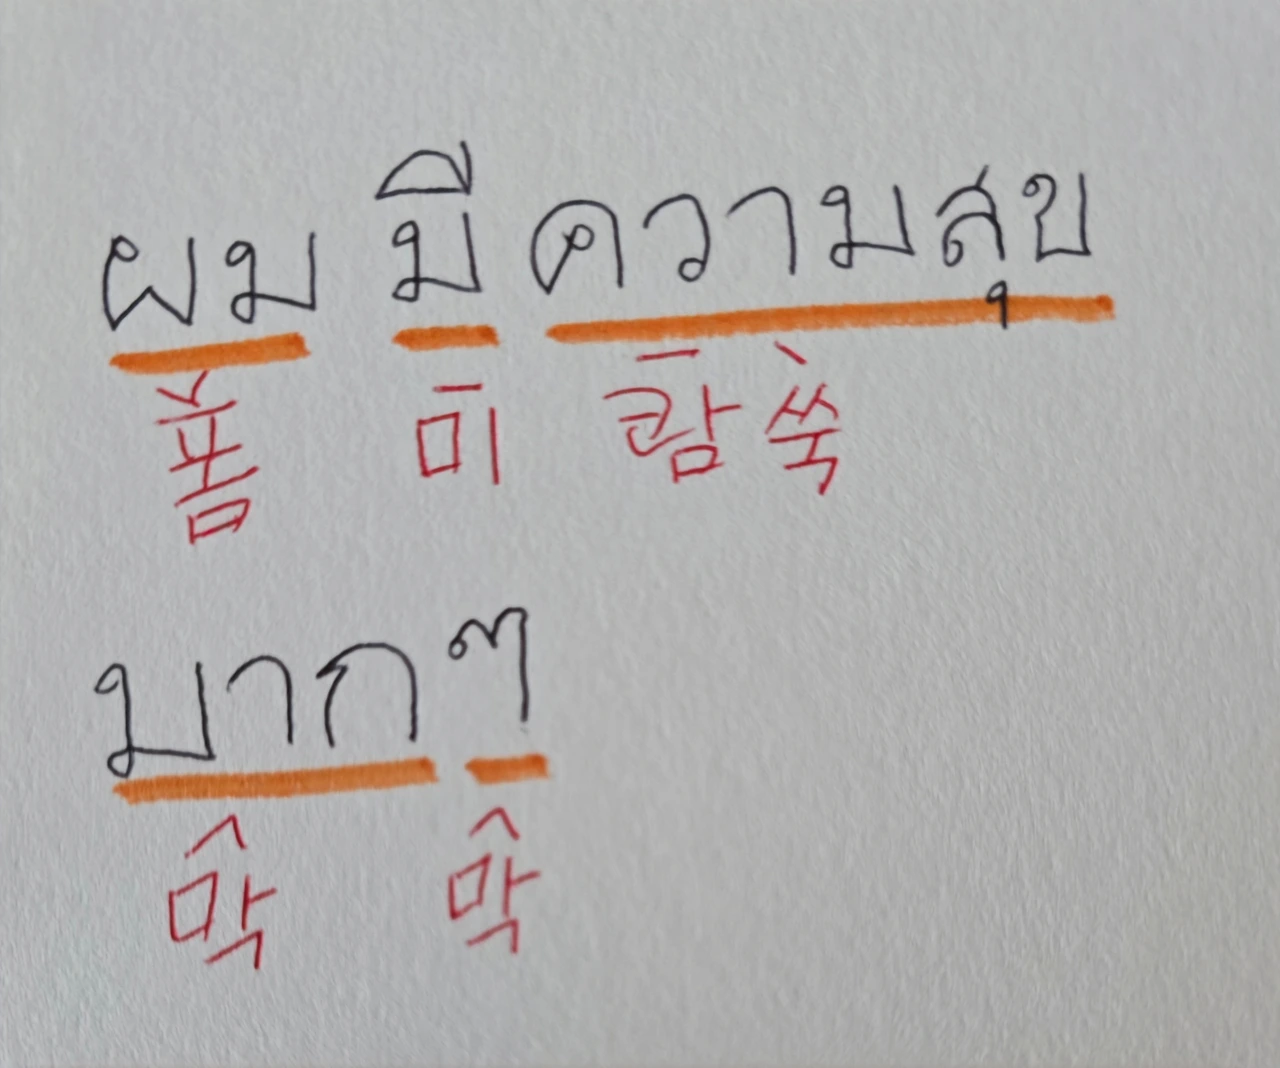 ผม มี ความสุข
폼 미 캄 쑥
มาก ๆ
막 막